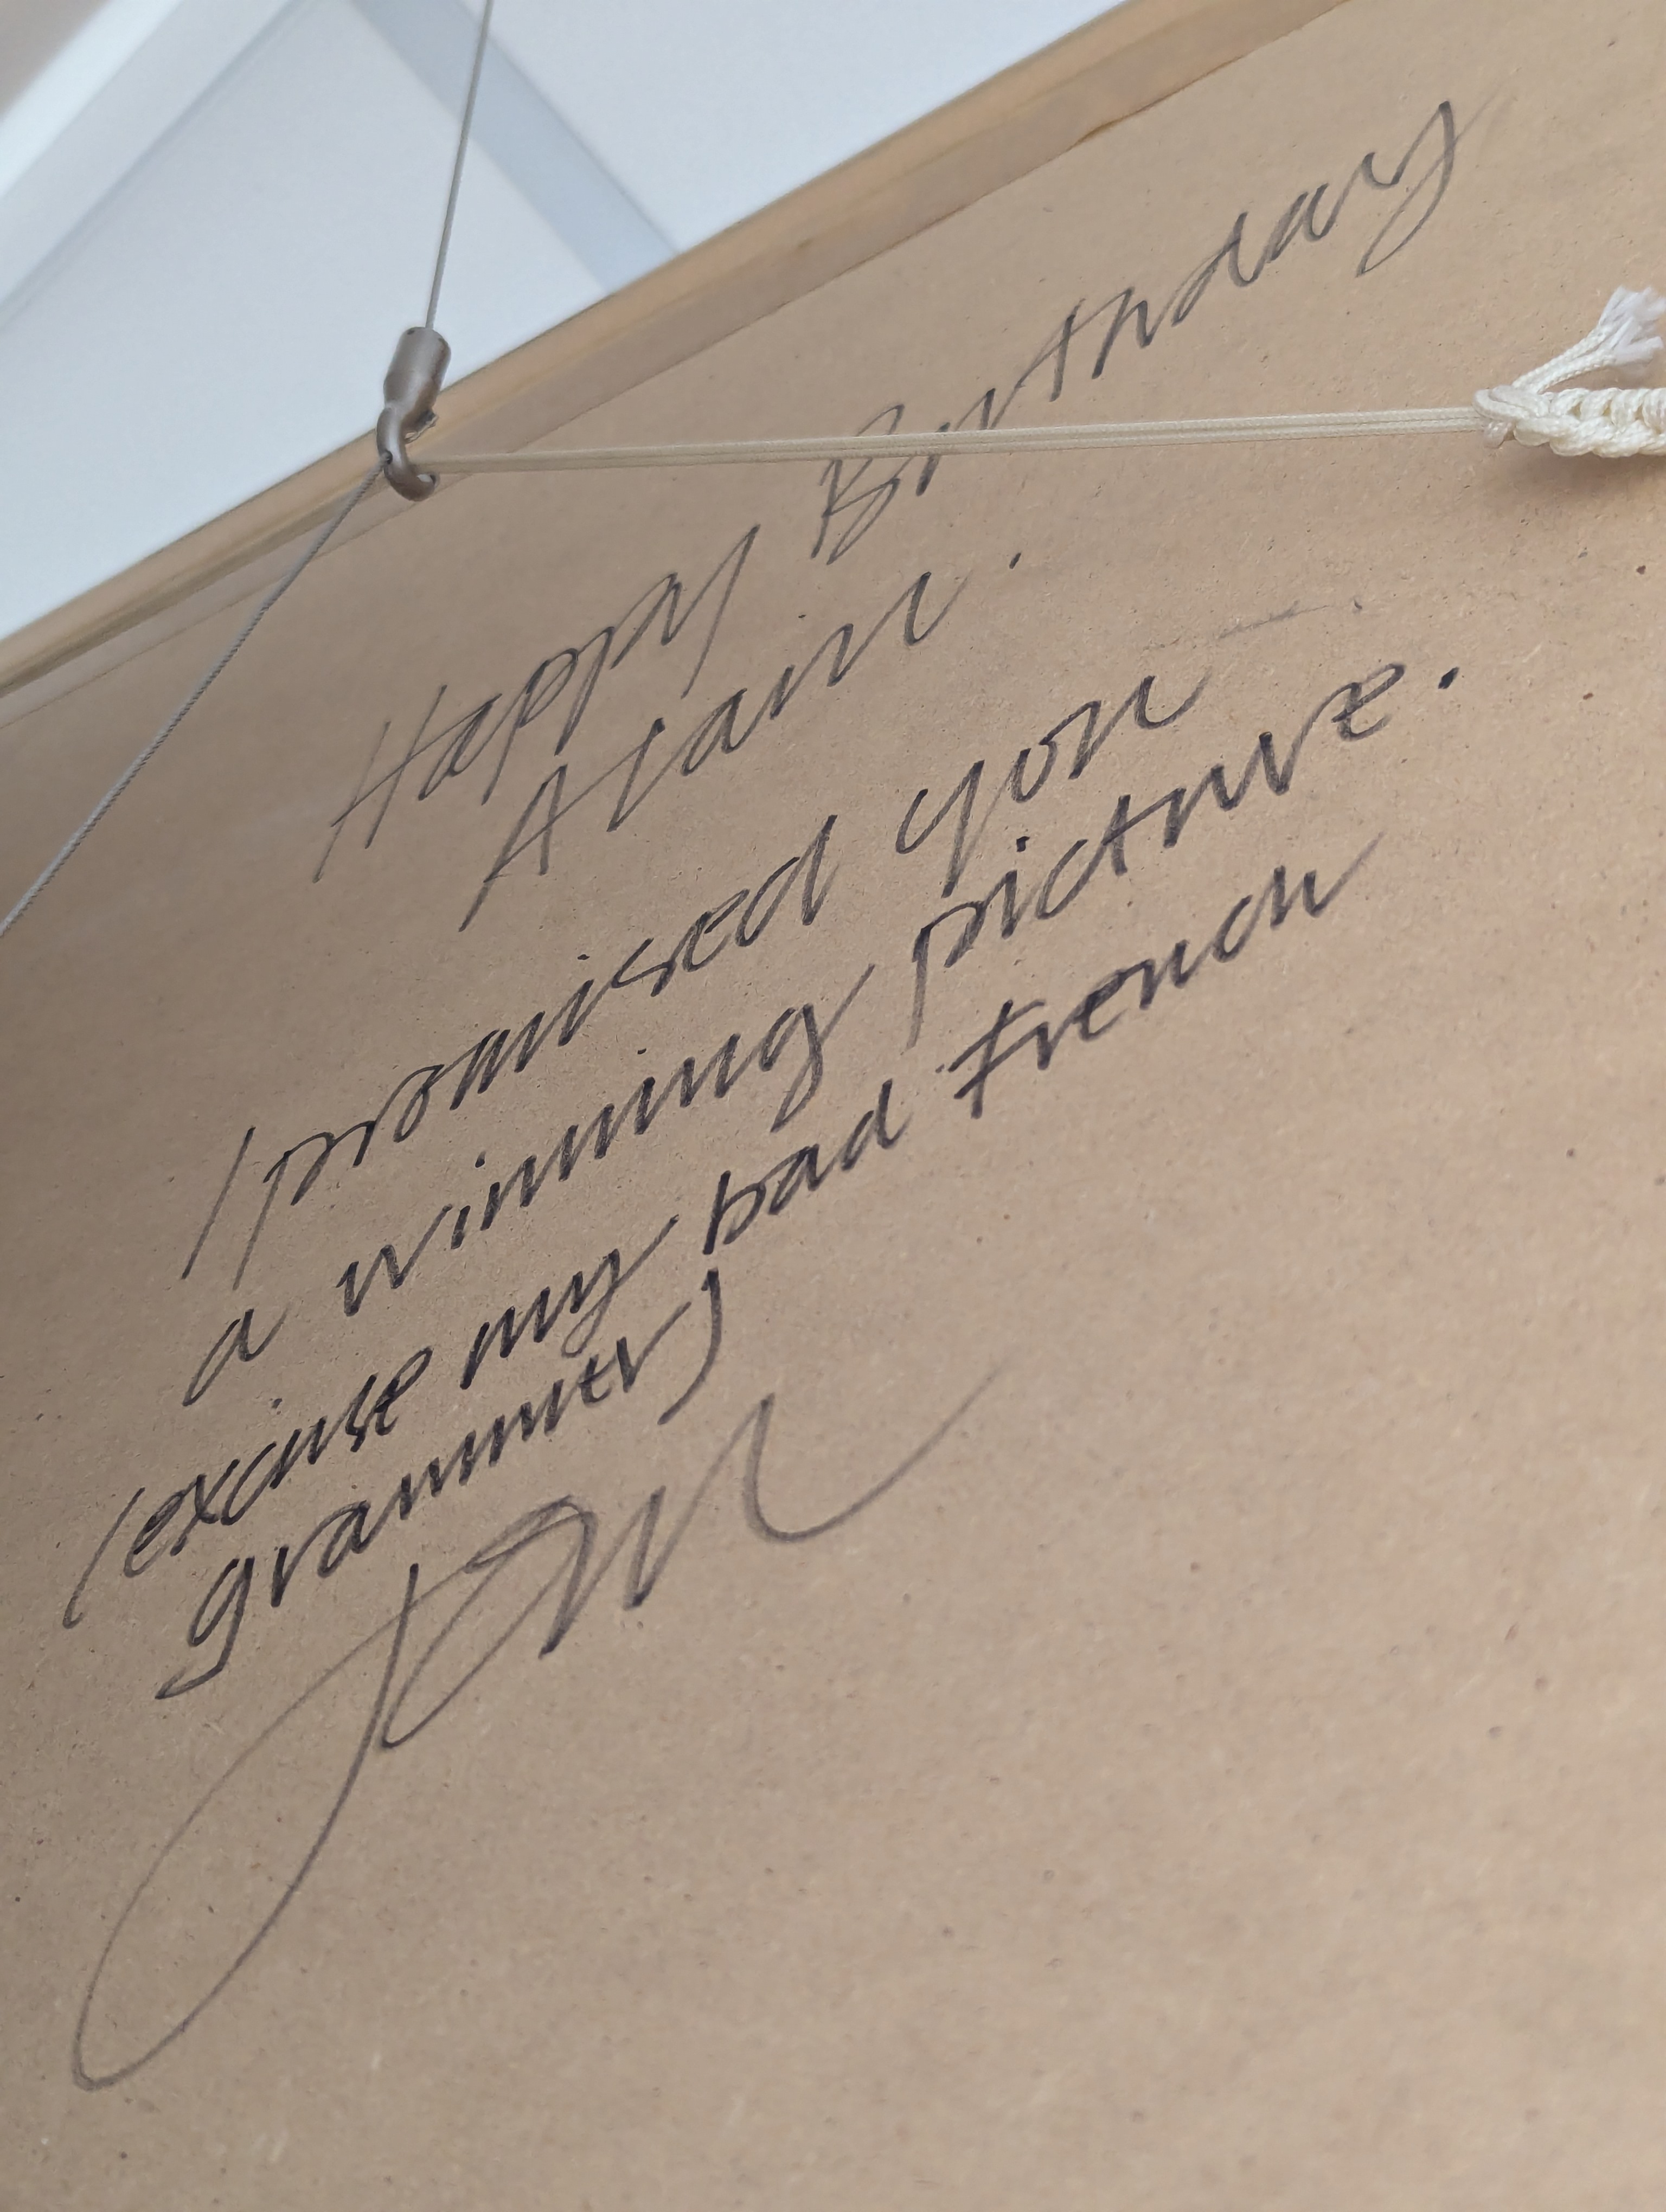 Happy Birthday
Alain.
I promised you
a winning picture.
(excuse my bad French
grammer)